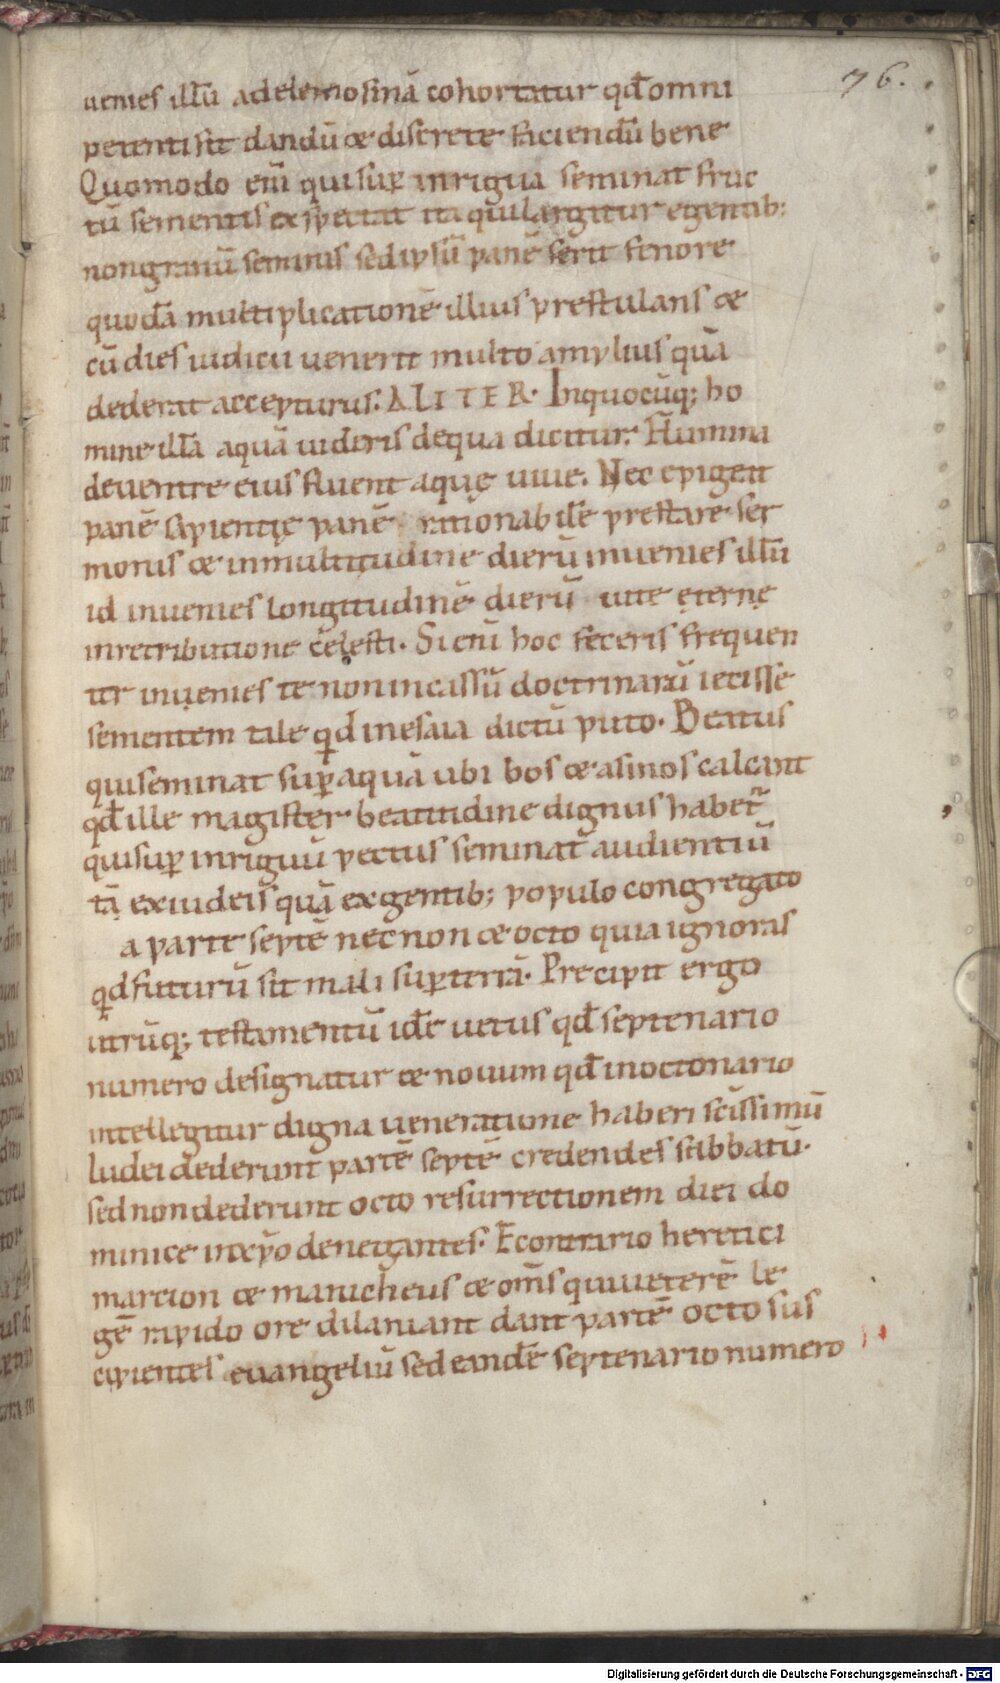 76.
uenies illū ad elemosinā cohortatur qđ omni
petenti sit dandū & discrete faciendū bene
Quomodo eni̅ qui sup̱ inrigua seminat fruc
tū sementis exspectat ita qui largitur egentib;
non granū seminis sed ipsū panē serit fenore
quodā multiplicationē illius prestulans &
cū dies iudicii uenerit multo amplius quā
dederat accepturus. ALITER. Inquocūq; ho
mine illā aquā uideris de qua dicitur. Flumina
de uentre eius fluent aquę uiue. Nec epigeat
panē sapientię panē rationabilē prestare ser
monis & in multitudine dierū inuenies illū
id inuenies longitudinē dierū uite ęterne
in retributione celesti. Si eni̅ hoc feceris frequen
ter inuenies te non incassū doctrinarū iecisse
sementem tale qđ in esaia dictū puto. Beatus
qui seminat sup̱ aquā ubi bos & asinos calcant
qđ ille magister beatitudine dignus habet̄
qui sup̱ inriguū pectus seminat audientiū
tā ex iudeis quā ex gentib; populo congregato
a parte septē nec non & octo quia ignoras
qđ futurū sit mali sup̱ terrā. Precipit ergo
utrūq; testamentū idē uetus qđ septenario
numero designatur & nouum qđ in octonario
intellegitur digna ueneratione haberi sc̄issimū
Iudei dederunt partē septē credendes sabbatū.
sed non dederunt octo resurrectionem diei do
minice in xp̄o denegantes. Econtrario heretici
marcion & manicheus & om̄s qui ueterē le
gē rapido ore dilaniant dant partē octo sus
cipientes euangeliū sed eandē septenario numero
Digitalisierung gefördert durch die Deutsche Forschungsgemeinschaft - DFG